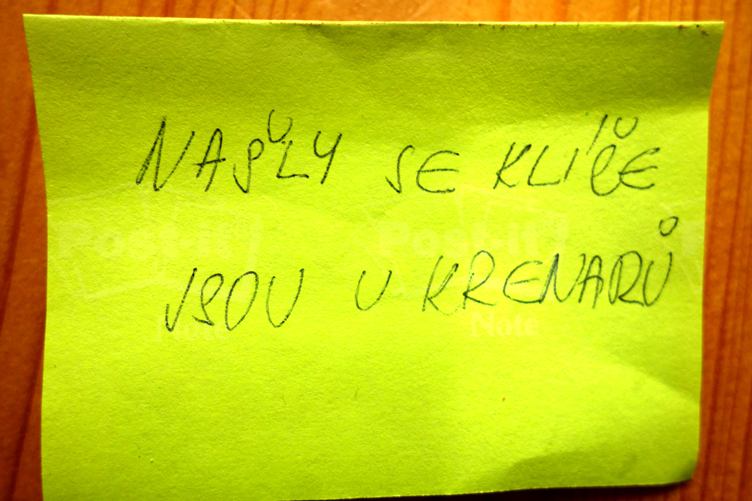 NAŠLY SE KLÍČE
JSOU U KRENARŮ
Post-it Post-it
Note Note